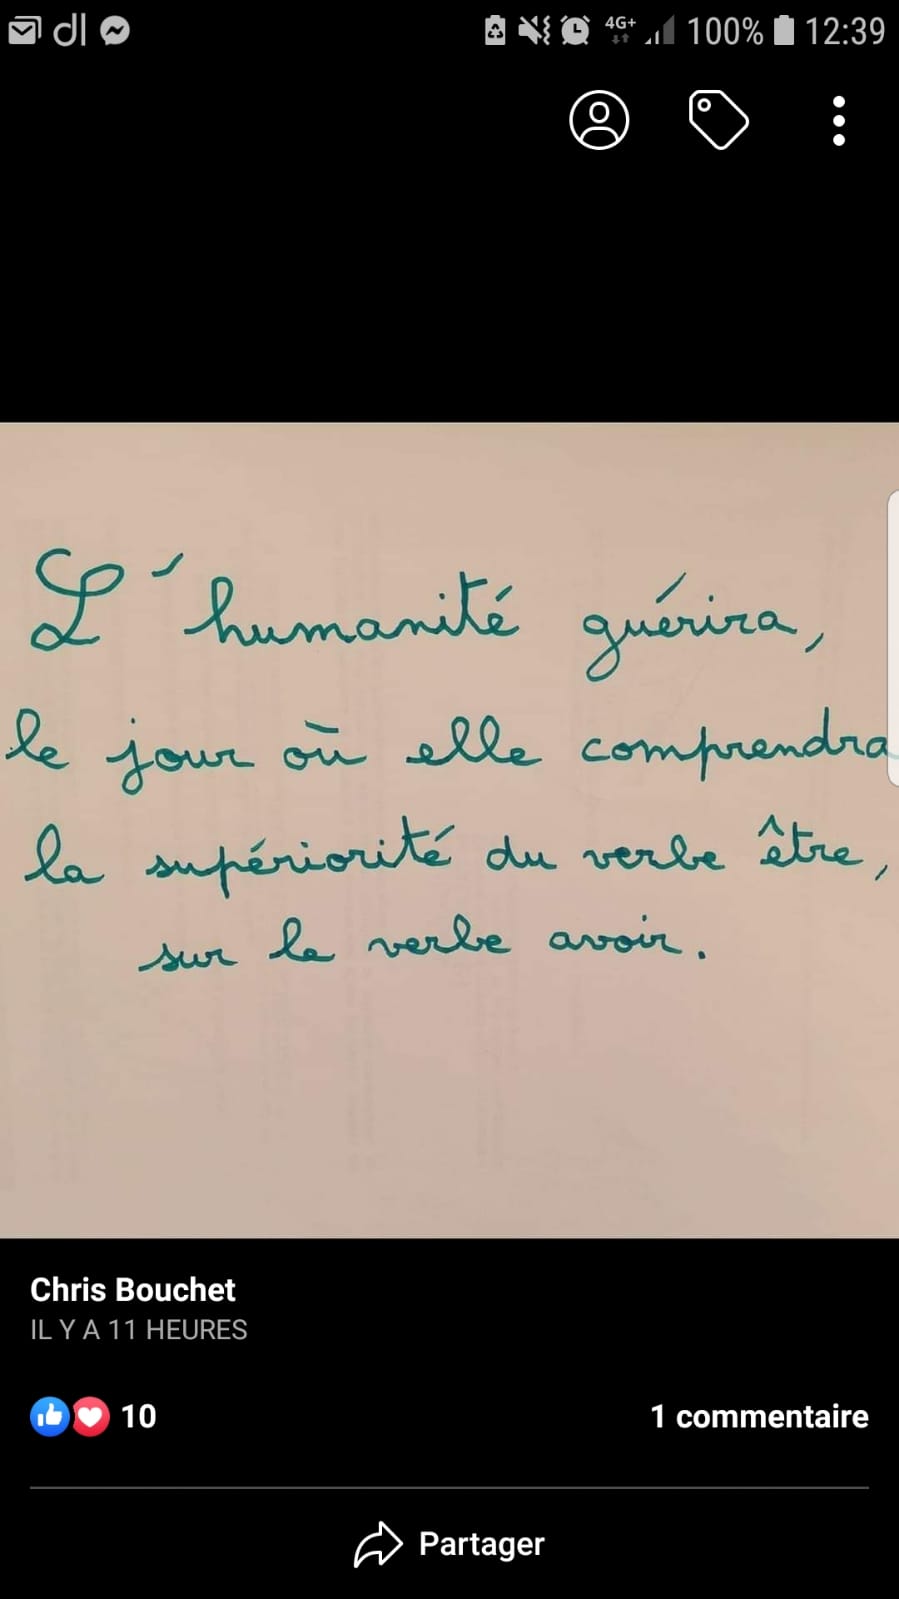 dl 4G+ 100% 12:39
L'humanité guérira,
le jour où elle comprendra
la supériorité du verbe être,
sur le verbe avoir.
Chris Bouchet
IL Y A 11 HEURES
10 1 commentaire
Partager